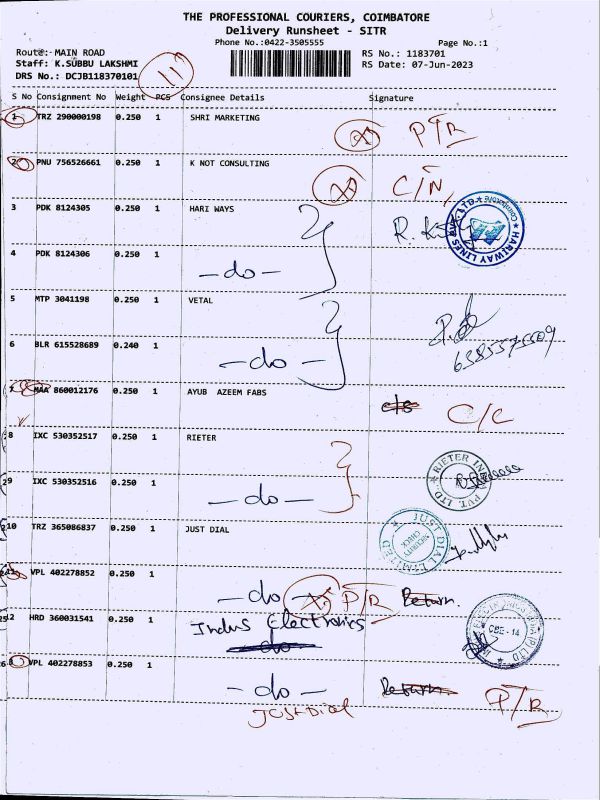 THE PROFESSIONAL COURIERS, COIMBATORE
Delivery Runsheet - SITR
Phone No.:0422-3505555 Page No.:1
Route: MAIN ROAD RS No.: 1183701
Staff: K.SUBBU LAKSHMI RS Date: 07-Jun-2023
DRS No.: DCJB118370101
S No Consignment No Weight PCS Consignee Details Signature
1 TRZ 290000198 0.250 1 SHRI MARKETING P/R
2 PNU 756526661 0.250 1 K NOT CONSULTING C/N
3 PDK 8124305 0.250 1 HARI WAYS
HARIWAY LINES PVT. LTD
4 PDK 8124306 0.250 1 -do-
5 MTP 3041198 0.250 1 VETAL
6 BLR 615528689 0.240 1 -do-
7 MAA 860012176 0.250 1 AYUB AZEEM FABS C/C
8 IXC 530352517 0.250 1 RIETER
9 IXC 530352516 0.250 1 -do-
10 TRZ 365086837 0.250 1 JUST DIAL
JUST DIAL LIMITED
SECURITY CHECK
11 VPL 402278852 0.250 1 -do- P/R Return.
12 HRD 360031541 0.250 1 Indus Electronics
CBE - 14
13 VPL 402278853 0.250 1 -do- Return P/R
JUSTDIAL